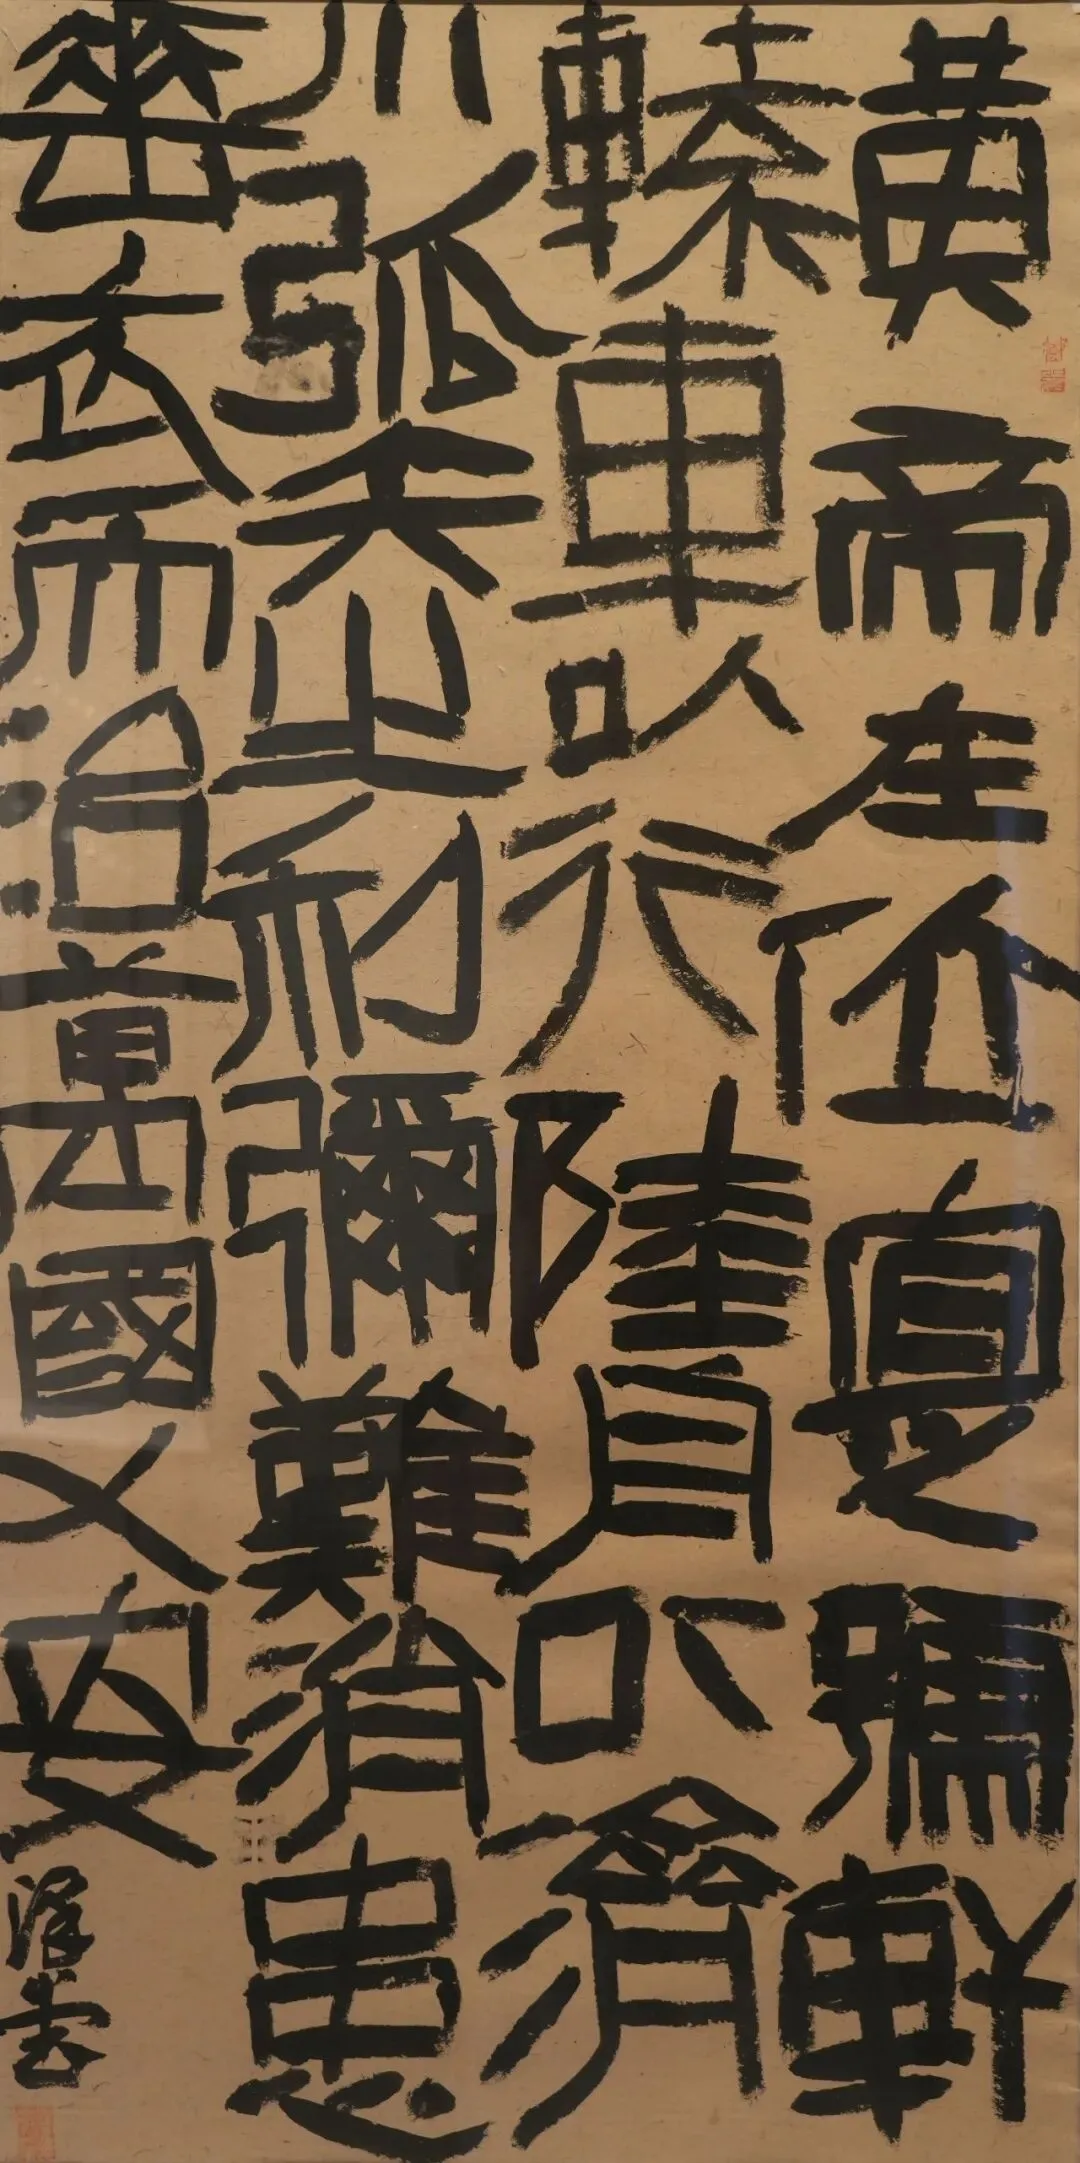 黄帝在位寔號軒
轅車以行陸舟以濟
川弧矢之利彌難消患
垂衣而治萬國乂安